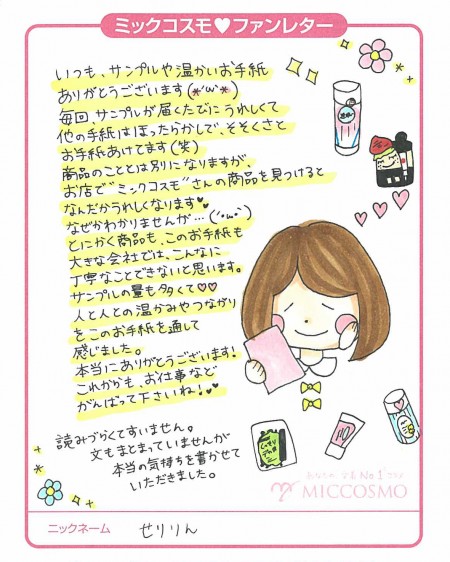 ミックコスモ♥ファンレター
いつも、サンプルや温かいお手紙
ありがとうございます(*'ω'*)
毎回、サンプルが届くたびにうれしくて
他の手紙はほったらかしで、そそくさと
お手紙あけてます(笑)
商品のこととは別になりますが、
お店で"ミックコスモ"さんの商品を見つけると
なんだかうれしくなります♥♥
なぜかわかりませんが…(´･ω･`)
とにかく商品も、このお手紙も
大きな会社では、こんなに
丁寧なことできないと思います。
サンプルの量も多くて♡♡
人と人との温かみやつながり
をこのお手紙を通して
感じました。
本当にありがとうございます!
これからも、お仕事など
がんばって下さいね!♥♥
読みづらくてすいません。
文もまとまっていませんが
本当の気持ちを書かせて
いただきました。
MICCOSMO
ニックネーム せりりん